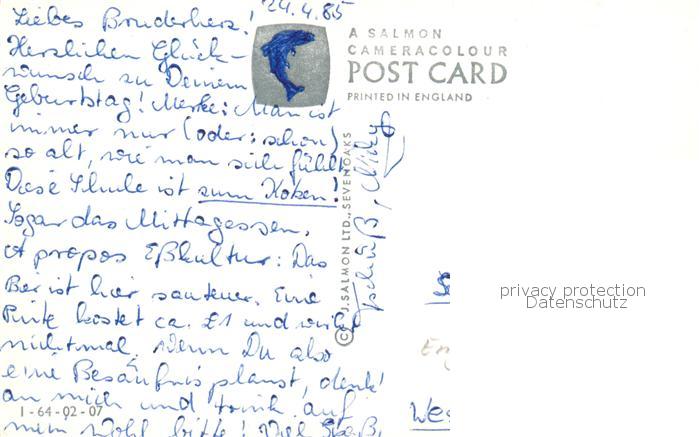 24.4.85
Liebes Bruderherz!
Herzlichen Glück-
wunsch zu Deinem
Geburtstag! Merke: Man ist
immer nur (oder: schon)
so alt, wie man sich fühlt.
Diese Schule ist zum Kotzen!
Sogar das Mittagessen.
A propos Eßkultur: Das
Bier ist hier sauteuer. Eine
Pinte kostet ca. £1 und
nichtmal. Wenn Du also
eine Besäufnis planst, denk'
an mich und trink auf
mein Wohl bitte! Viel Spaß,
Tschüß,
A SALMON
CAMERACOLOUR
POST CARD
PRINTED IN ENGLAND
© J. SALMON LTD., SEVENOAKS
1-64-02-07
privacy protection
Datenschutz